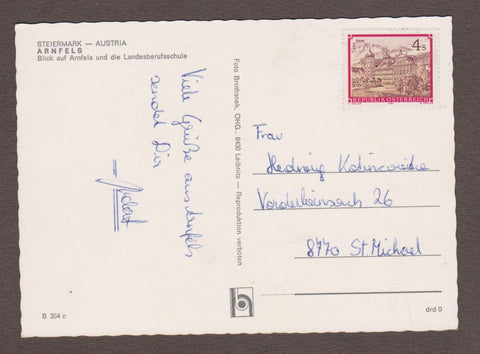 STEIERMARK — AUSTRIA
ARNFELS
Blick auf Arnfels und die Landesberufsschule
Viele Grüße aus Arnfels
sendet Dir
Foto Brothanek, OHG., 8430 Leibnitz — Reproduktion verboten
4 S
REPUBLIK ÖSTERREICH
Frau
Hedwig
Vorderlainsach 26
8770 St. Michael
B 354 c
drd 0